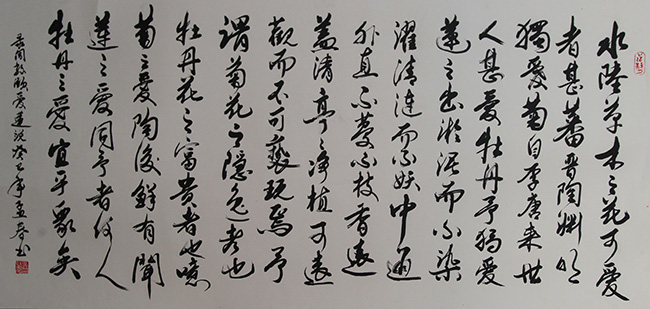 水陸草木之花可愛
者甚蕃晋陶渊明
獨愛菊自李唐来世
人甚愛牡丹予独愛
蓮之出淤泥而不染
濯清涟而不妖中通
外直不蔓不枝香遠
益清亭々净植可遠
觀而不可褻玩焉予
謂菊花之隐逸者也
牡丹花之富貴者也噫
菊之愛陶後鲜有聞
蓮之愛同予者何人
牡丹之愛宜乎衆矣
录周敦颐愛莲说癸巳年孟春书